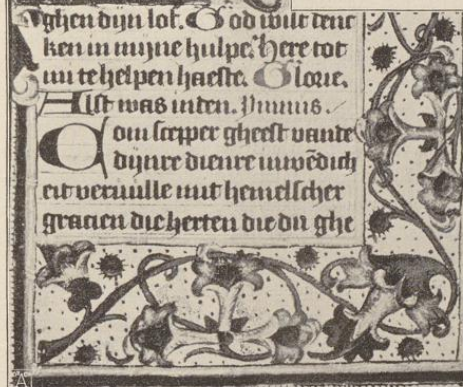 ghen dijn lof. God wilt denc
ken in mijne hulpe. Here tot
mi te helpen haeste. Glorie.
Alst was inten. Ymnus.
Com scepper gheest vante
dijnre dienre inwēdich
eñ vervulle mit hemelscher
gracien die herten die du ghe